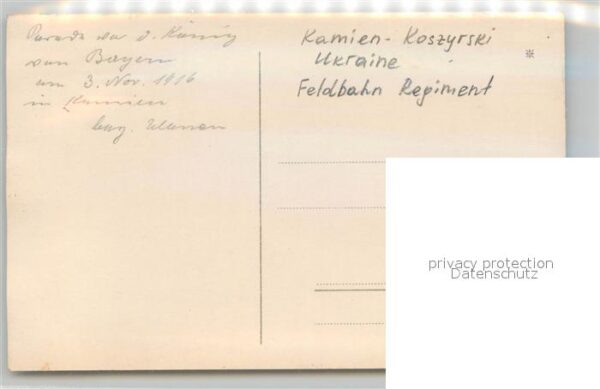 Parade vor d. König
von Bayern
am 3. Nov. 1916
in Kamien
bay. Ulanen
Kamien-Koszyrski
Ukraine
Feldbahn Regiment
privacy protection
Datenschutz